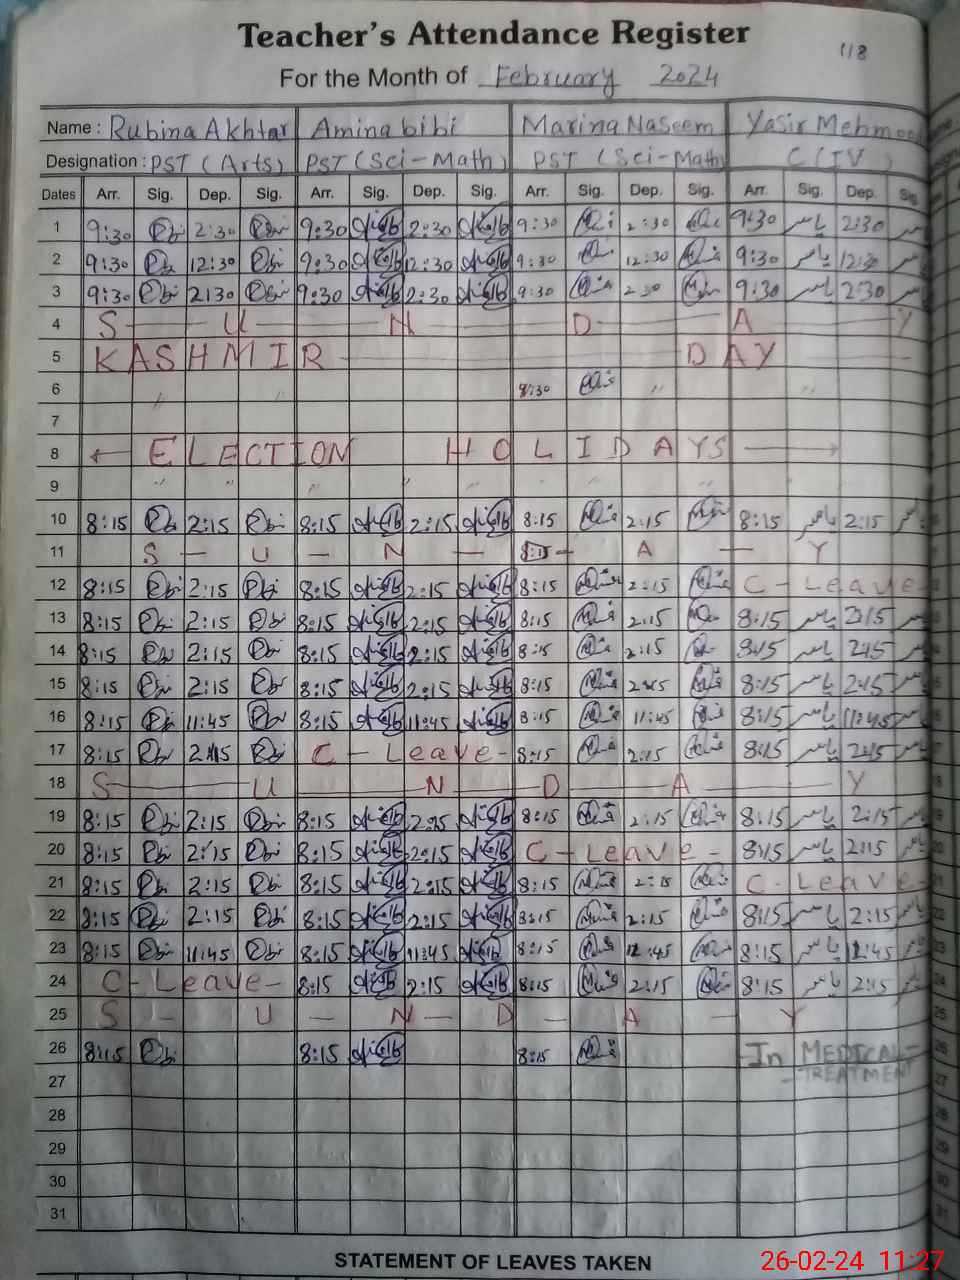 118
Teacher's Attendance Register
For the Month of February 2024
Name : Rubina Akhtar Amina bibi Marina Naseem Yasir Mehmood
Designation : PST (Arts) PST (Sci-Math) PST (Sci-Math) C(IV)
Dates Arr. Sig. Dep. Sig. Arr. Sig. Dep. Sig. Arr. Sig. Dep. Sig. Arr. Sig. Dep. Sig
1 9:30 2:30 9:30 2:30 9:30 2:30 9:30 یاسر 2:30
2 9:30 12:30 9:30 12:30 9:30 12:30 9:30 یاسر 12:30
3 9:30 2:30 9:30 2:30 9:30 2 30 9:30 یاسر 2:30
4 S U N D A Y
5 KASHMIR DAY
6 " " 8:30 " "
7
8 ← ELECTION HOLIDAYS →
9 " " " " " " "
10 8:15 2:15 8:15 2:15 8:15 2:15 8:15 یاسر 2:15
11 S - U - N - 8:15 - A - Y
12 8:15 2:15 8:15 2:15 8:15 2:15 C - Leave
13 8:15 2:15 8:15 2:15 8:15 2:15 8:15 یاسر 2:15
14 8:15 2:15 8:15 2:15 8:15 2:15 8:15 یاسر 2:15
15 8:15 2:15 8:15 2:15 8:15 2:15 8:15 یاسر 2:15
16 8:15 11:45 8:15 11:45 8:15 11:45 8:15 یاسر 11:45
17 8:15 2:15 C - Leave - 8:15 2:15 8:15 یاسر 2:15
18 S U N D A Y
19 8:15 2:15 8:15 2:15 8:15 2:15 8:15 یاسر 2:15
20 8:15 2:15 8:15 2:15 C - Leave - 8:15 یاسر 2:15
21 8:15 2:15 8:15 2:15 8:15 2:15 C - Leave
22 8:15 2:15 8:15 2:15 8:15 2:15 8:15 یاسر 2:15
23 8:15 11:45 8:15 11:45 8:15 12:45 8:15 یاسر 11:45
24 C - Leave - 8:15 2:15 8:15 2:15 8:15 یاسر 2:15
25 S - U - N - D - A - Y
26 8:15 8:15 8:15 - In MEDICAL -
27 - TREATMENT
28
29
30
31
STATEMENT OF LEAVES TAKEN
26-02-24 11:27